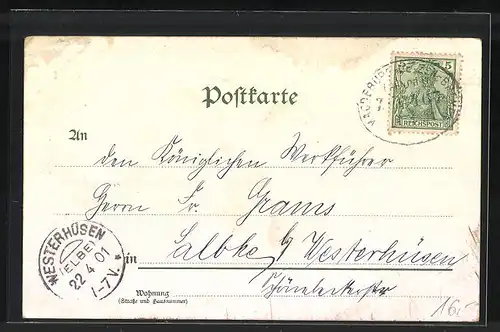 Postkarte
5
REICHSPOST
An
den Königlichen Werkführer
Herrn Fr. Grams
in Salbke b/ Westerhüsen
Wohnung
(Straße und Hausnummer)
Schönebeckerstr
WESTERHÜSEN
(ELBE)
22 4 01
1-7 V.
16,-